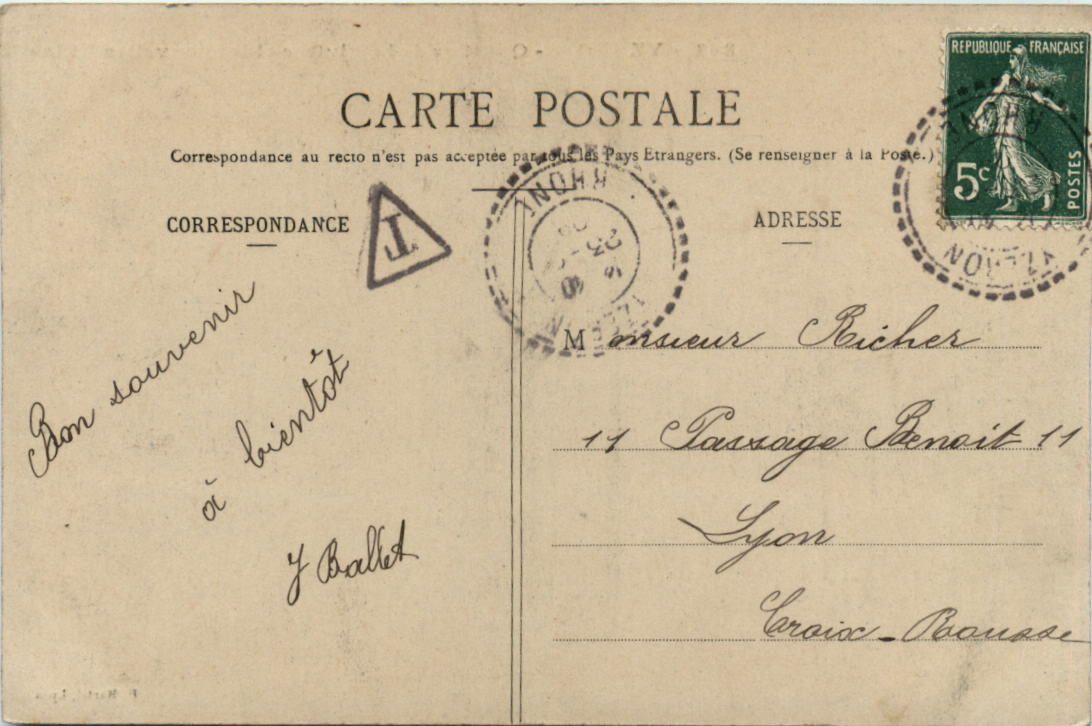 CARTE POSTALE
Correspondance au recto n'est pas acceptée par tous les Pays Etrangers. (Se renseigner à la Poste.)
CORRESPONDANCE
T
ADRESSE
REPUBLIQUE FRANÇAISE
5c
POSTES
RHONE
YZERON
RHONE
23
Bon souvenir
à bientôt
J Ballet
Monsieur Richer
11 Passage Benoit 11
Lyon
Croix-Rousse